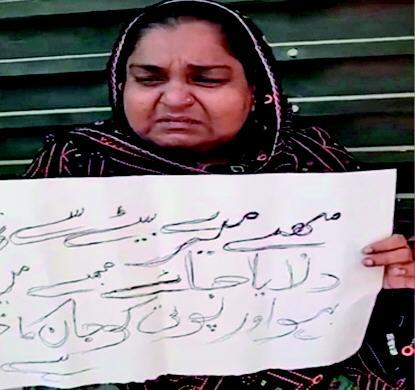 مجھے میرے بیٹے سے
دلایا جائے مجھے
بہو اور پوتی کو جان کا
سے